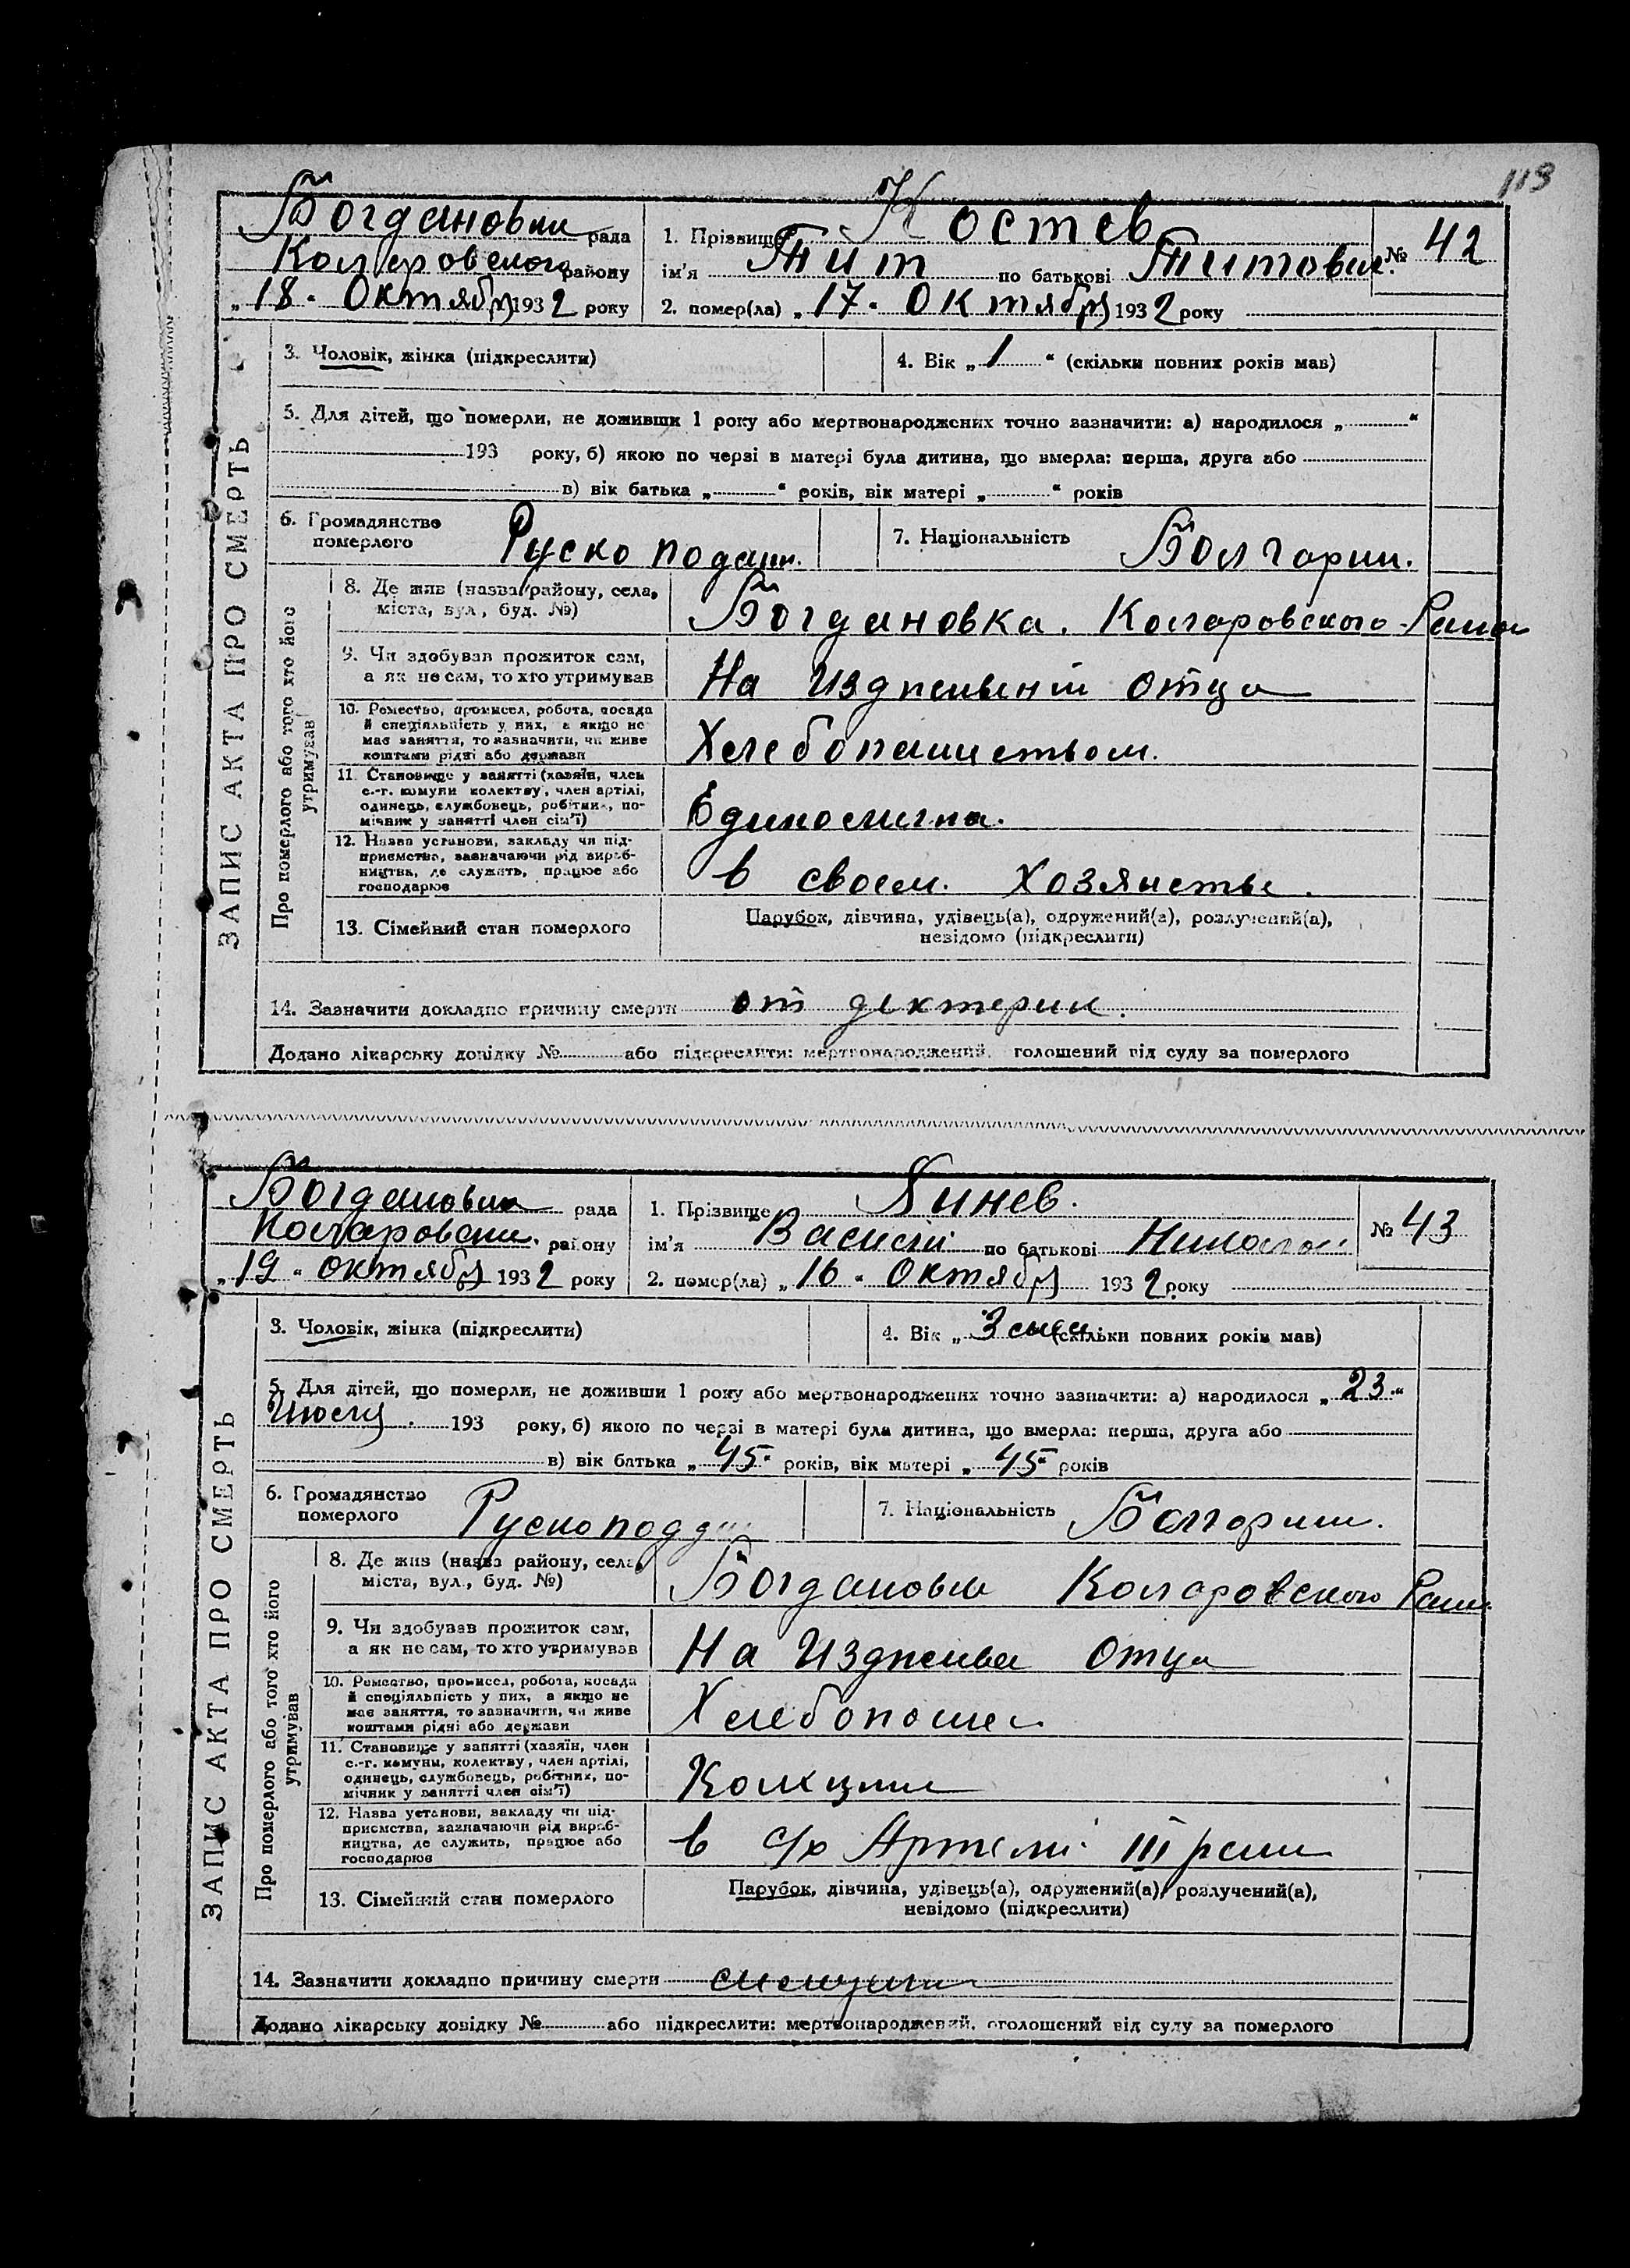 113
Богдановки рада
Коларовского району
„ 18 “ Октября 1932 року
1. Прізвище Костев
ім'я Тит по батькові Титович
№ 42
2. помер(ла) „ 17 “ Октября 1932 року
ЗАПИС АКТА ПРО СМЕРТЬ
3. Чоловік, жінка (підкреслити)
4. Вік „ 1 “ (скільки повних років мав)
5. Для дітей, що померли, не доживши 1 року або мертвонароджених точно зазначити: а) народилося „ “
193 року, б) якою по черзі в матері була дитина, що вмерла: перша, друга або
в) вік батька „ “ років, вік матері „ “ років
6. Громадянство
померлого
Руско подан.
7. Національність Болгарин.
Про померлого або того хто його
утримував
8. Де жив (назва району, села,
міста, вул, буд. №)
Богдановка. Коларовского
9. Чи здобував прожиток сам,
а як не сам, то хто утримував
На отца
10. Ремество, промисел, робота, посада
й спеціяльність у них, а якщо не
має заняття, то зазначити, чи живе
коштами рідні або держави
Хлебопашеством.
11. Становище у занятті (хазяїн, член
с.-г. комуни колективу, член артілі,
одинець, службовець, робітник, по-
мічник у занятті член сім'ї)
12. Назва установи, закладу чи під-
приємства, зазначаючи рід вироб-
ництва, де служить, працює або
господарює
в своем. Хозяистве.
13. Сімейний стан померлого
Парубок, дівчина, удівець(а), одружений(а), розлучений(а),
невідомо (підкреслити)
14. Зазначити докладно причину смерти от дектерии.
Додано лікарську довідку № або підкреслити: мертвонароджений, голошений від суду за померлого
Богдановки рада
Коларовский району
„ 19 “ октября 1932 року
1. Прізвище Линев.
ім'я Василий по батькові Николай
№ 43
2. помер(ла) „ 16 “ Октября 1932 року
ЗАПИС АКТА ПРО СМЕРТЬ
3. Чоловік, жінка (підкреслити)
4. Вік „ 3 (скільки повних років мав)
5. Для дітей, що померли, не доживши 1 року або мертвонароджених точно зазначити: а) народилося „ 23 “
Июля 193 року, б) якою по черзі в матері була дитина, що вмерла: перша, друга або
в) вік батька „ 45 “ років, вік матері „ 45 “ років
6. Громадянство
померлого
7. Національність Болгарин.
Про померлого або того хто його
утримував
8. Де жив (назва району, села,
міста, вул., буд. №)
Богдановка Коларовского
9. Чи здобував прожиток сам,
а як не сам, то хто утримував
На отца
10. Ремество, промисел, робота, посада
й спеціяльність у них, а якщо не
має заняття, то зазначити, чи живе
коштами рідні або держави
11. Становище у занятті (хазяїн, член
с.-г. комуни, колективу, член артілі,
одинець, службовець, робітник, по-
мічник у занятті член сім'ї)
12. Назва установи, закладу чи під-
приємства, зазначаючи рід вироб-
ництва, де служить, працює або
господарює
в с/х Артели III
13. Сімейний стан померлого
Парубок, дівчина, удівець(а), одружений(а), розлучений(а),
невідомо (підкреслити)
14. Зазначити докладно причину смерти
Додано лікарську довідку № або підкреслити: мертвонароджений, оголошений від суду за померлого